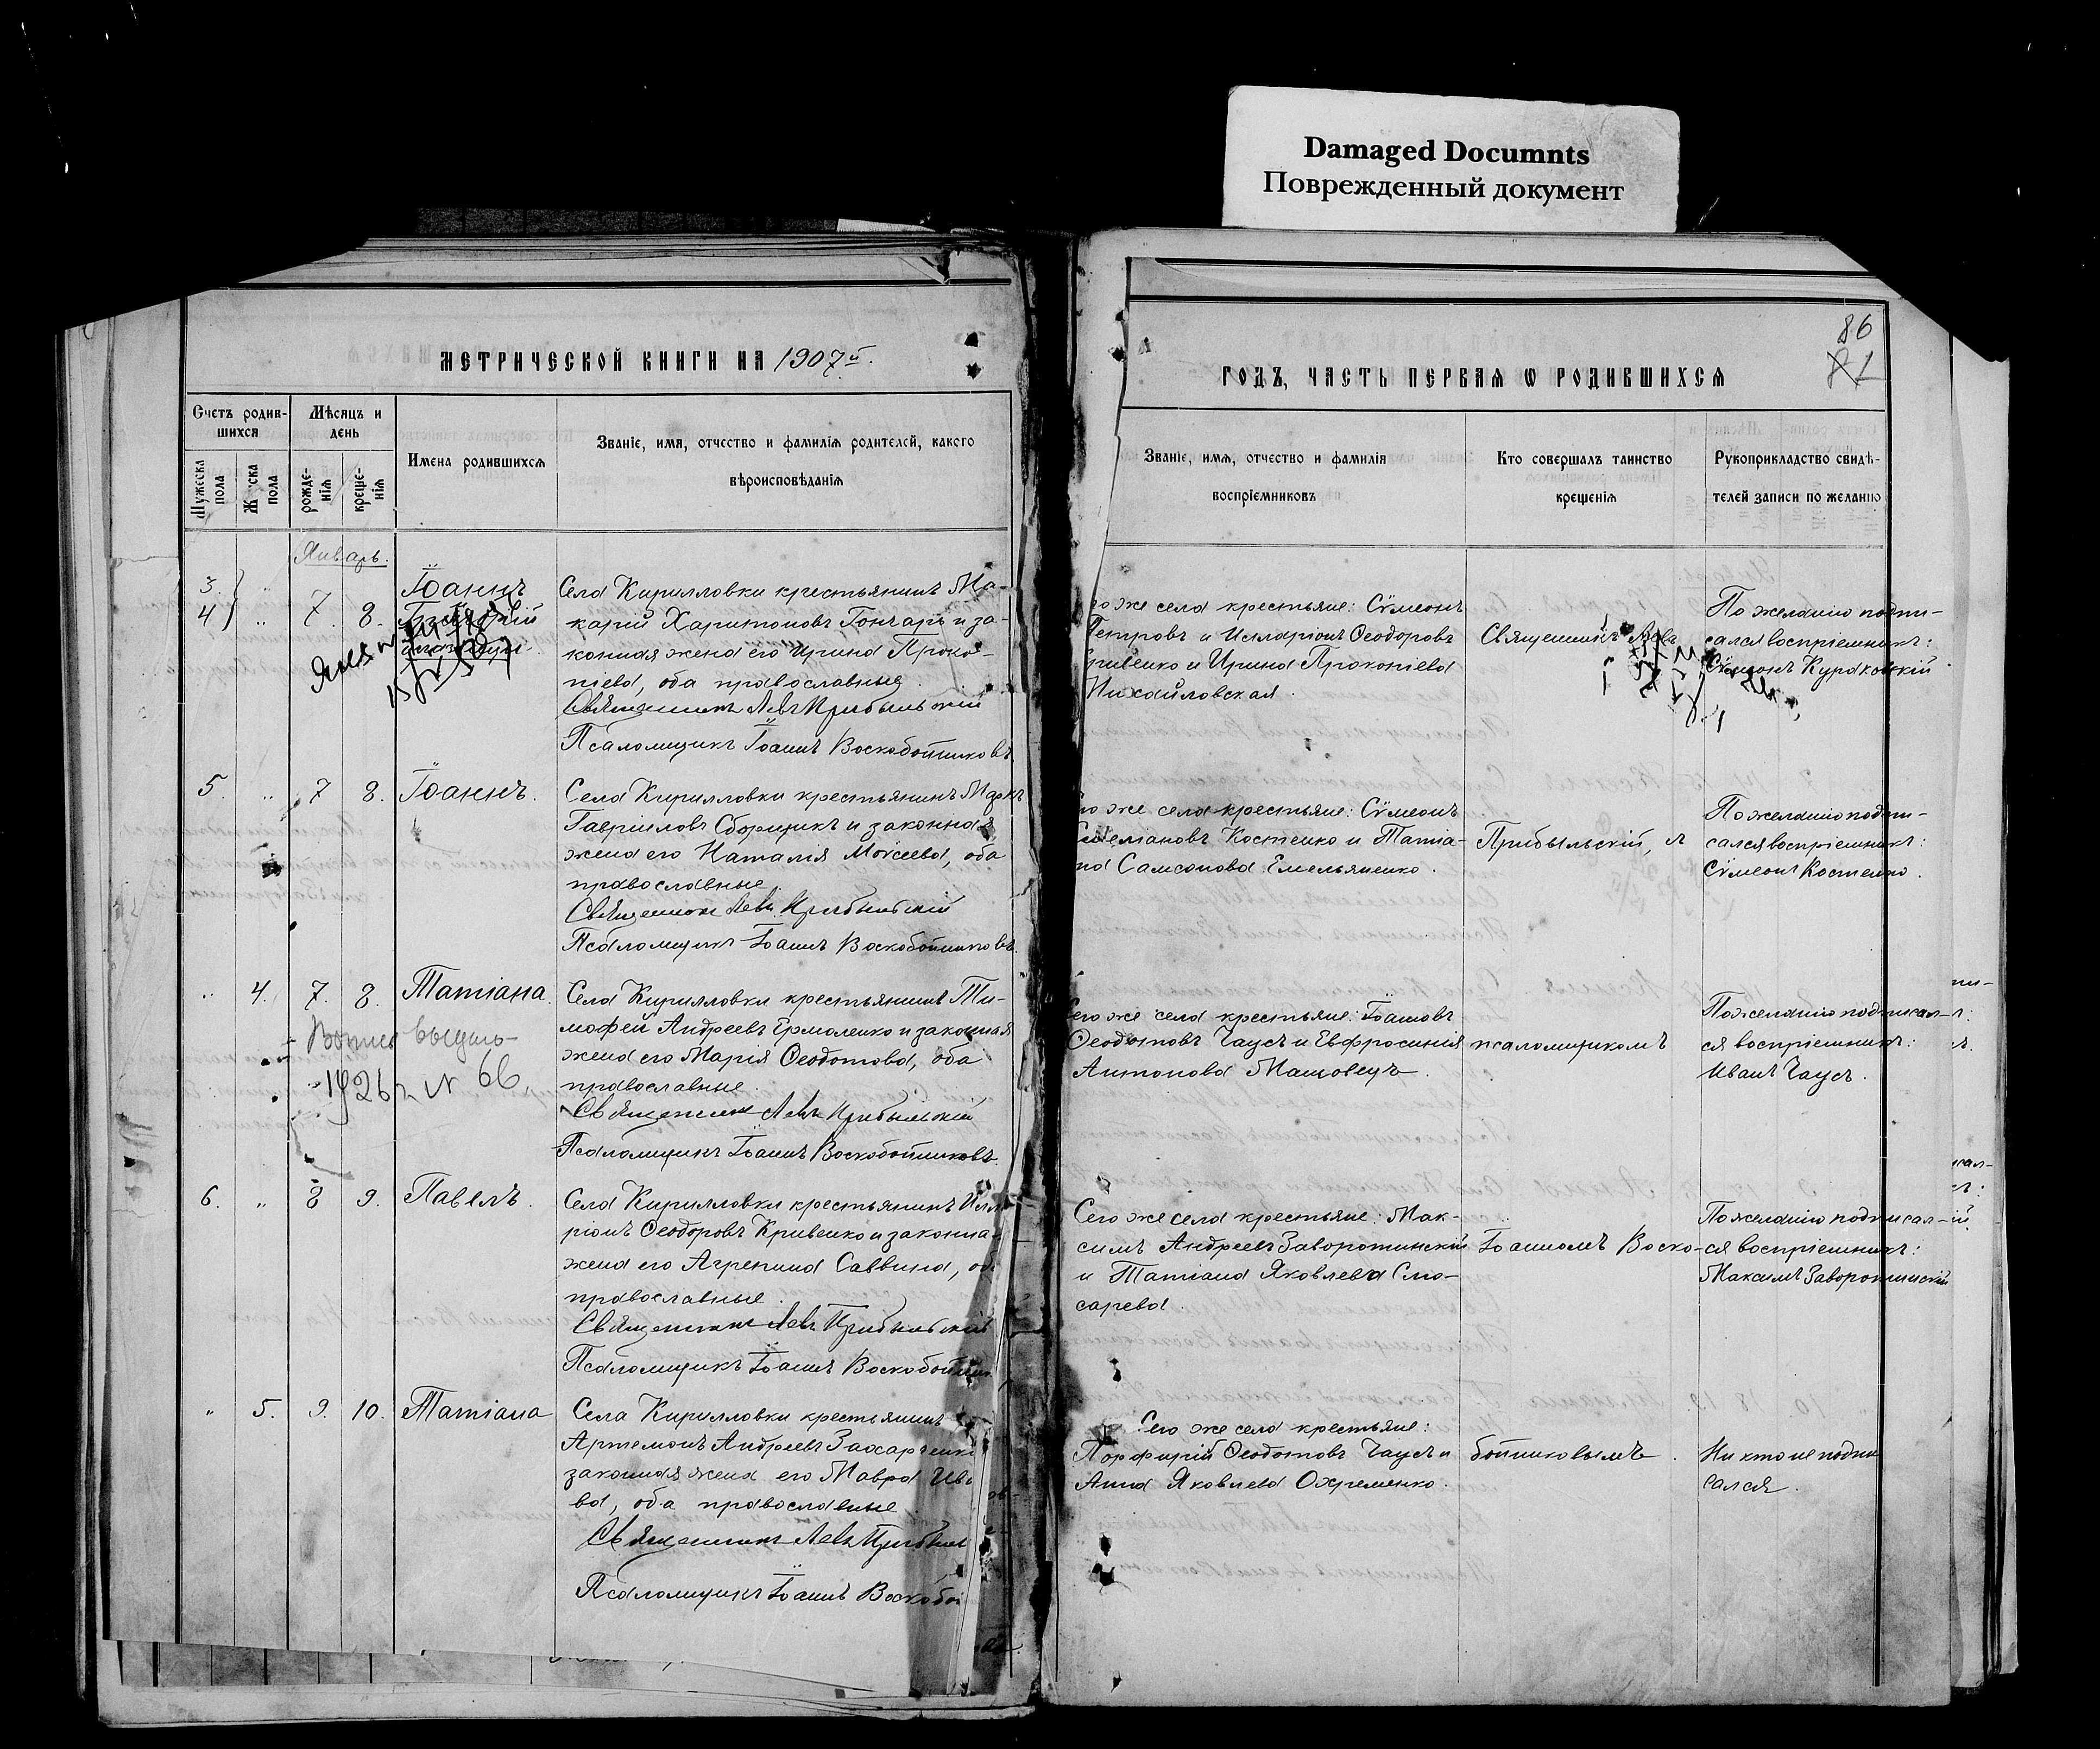 Damaged Documnts
Поврежденный документ
МЕТРИЧЕСКОЙ КНИГИ НА 1907й.
Счетъ родив-
шихся
Мѣсяцъ и
день
Имена родившихся
Званіе, имя, отчество и фамилія родителей, какого
вѣроисповѣданія
Мужеска
пола
пола
рожде-
нія
креще-
нія
Январь.
3.
4
7. 8.
Іоаннъ
Села Кирилловки крестьянинъ Ма-
карій Харитоновъ Гончаръ и за-
конная жена его Ирина Проко-
піева, оба православные.
Священникъ Левъ Прибыльскій
Псаломщикъ Іоаннъ Воскобойниковъ
5. „ 7 8. Іоаннъ.
Села Кирилловки крестьянинъ Маркъ
Гавріиловъ Сборщикъ и законная
жена его Наталія Моѵсеева, оба
православные
Священникъ Левъ Прибыльскій
Псаломщикъ Іоаннъ Воскобойниковъ.
„ 4. 7. 8. Татіана.
Села Кирилловки крестьянинъ Ти-
мофей Андреевъ Ермоленко и законная
жена его Марія Ѳеодотова, оба
православные.
Священникъ Левъ Прибыльскій
Псаломщикъ Іоаннъ Воскобойниковъ.
1926 г. N 66.
6. „ 8 9. Павелъ.
Села Кирилловки крестьянинъ Илла
ріонъ Ѳеодоровъ Кривенко и законна
жена его Агрепина Саввина, об
православные.
Священникъ Левъ Прибыльскій
Псаломщикъ Іоаннъ Воскобойник
„ 5. 9. 10. Татіана
Села Кирилловки крестьянинъ
Артемонъ Андреевъ Захарченко
законная жена его Мавра Ива
ва, оба православные
Священникъ Левъ Прибыль
Псаломщикъ Іоаннъ Воскобой
86
ГОДЪ, ЧАСТЬ ПЕРВАЯ Ѡ РОДИВШИХСЯ
Званіе, имя, отчество и фамилія
воспріемниковъ
Кто совершалъ таинство
крещенія
Рукоприкладство свидѣ-
телей записи по желанію
го же села крестьяне: Сѵмеонъ
Петровъ и Илларіонъ Ѳеодоровъ
Кривенко и Ирина Прокопіева
Михайловская.
Священникъ Левъ
По желанію подпи-
сался воспріемникъ:
Сѵмеонъ
го же села крестьяне: Сѵмеонъ
Костенко и Татіа-
на Самсонова Емельяненко.
Прибыльскій, съ
По желанію подпи-
сался воспріемникъ:
Сѵмеонъ Костенко.
его же села крестьяне: Іоанновъ
Ѳеодотовъ Чаусъ и Евфросинія
Антонова
псаломщикомъ
По желанію подписал-
ся воспріемникъ:
Иванъ Чаусъ.
Сего же села крестьяне: Мак-
симъ Андреевъ Заворотинскій
и Татіана Яковлева Слю-
сарева.
Іоанномъ Воско-
По желанію подписал-
ся воспріемникъ:
Максимъ Заворотинскій
Сего же села крестьяне:
Порфирій Ѳеодотовъ Чаусъ и
Анна Яковлева Охременко.
бойниковымъ.
Никто не подпи
сался.